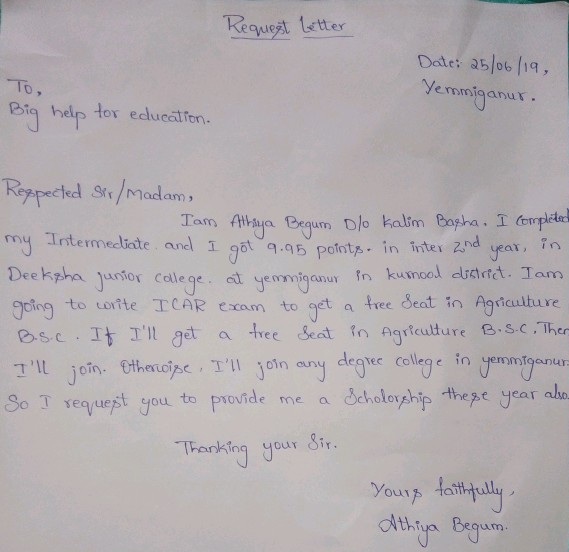 Request Letter
Date: 25/06/19,
Yemmiganur.
To,
Big help for education.
Respected Sir/Madam,
Iam Athiya Begum D/o Kalim Basha. I completed
my Intermediate and I got 9.95 points. in inter 2nd year, in
Deeksha junior college. at yemmiganur in kurnool district. Iam
going to write ICAR exam to get a free seat in Agriculture
B.S.C. If I'll get a free seat in Agriculture B.S.C, Then
I'll join. Otherwise, I'll join any degree college in yemmiganur.
So I request you to provide me a Scholorship these year also
Thanking your Sir.
Yours faithfully,
Athiya Begum.